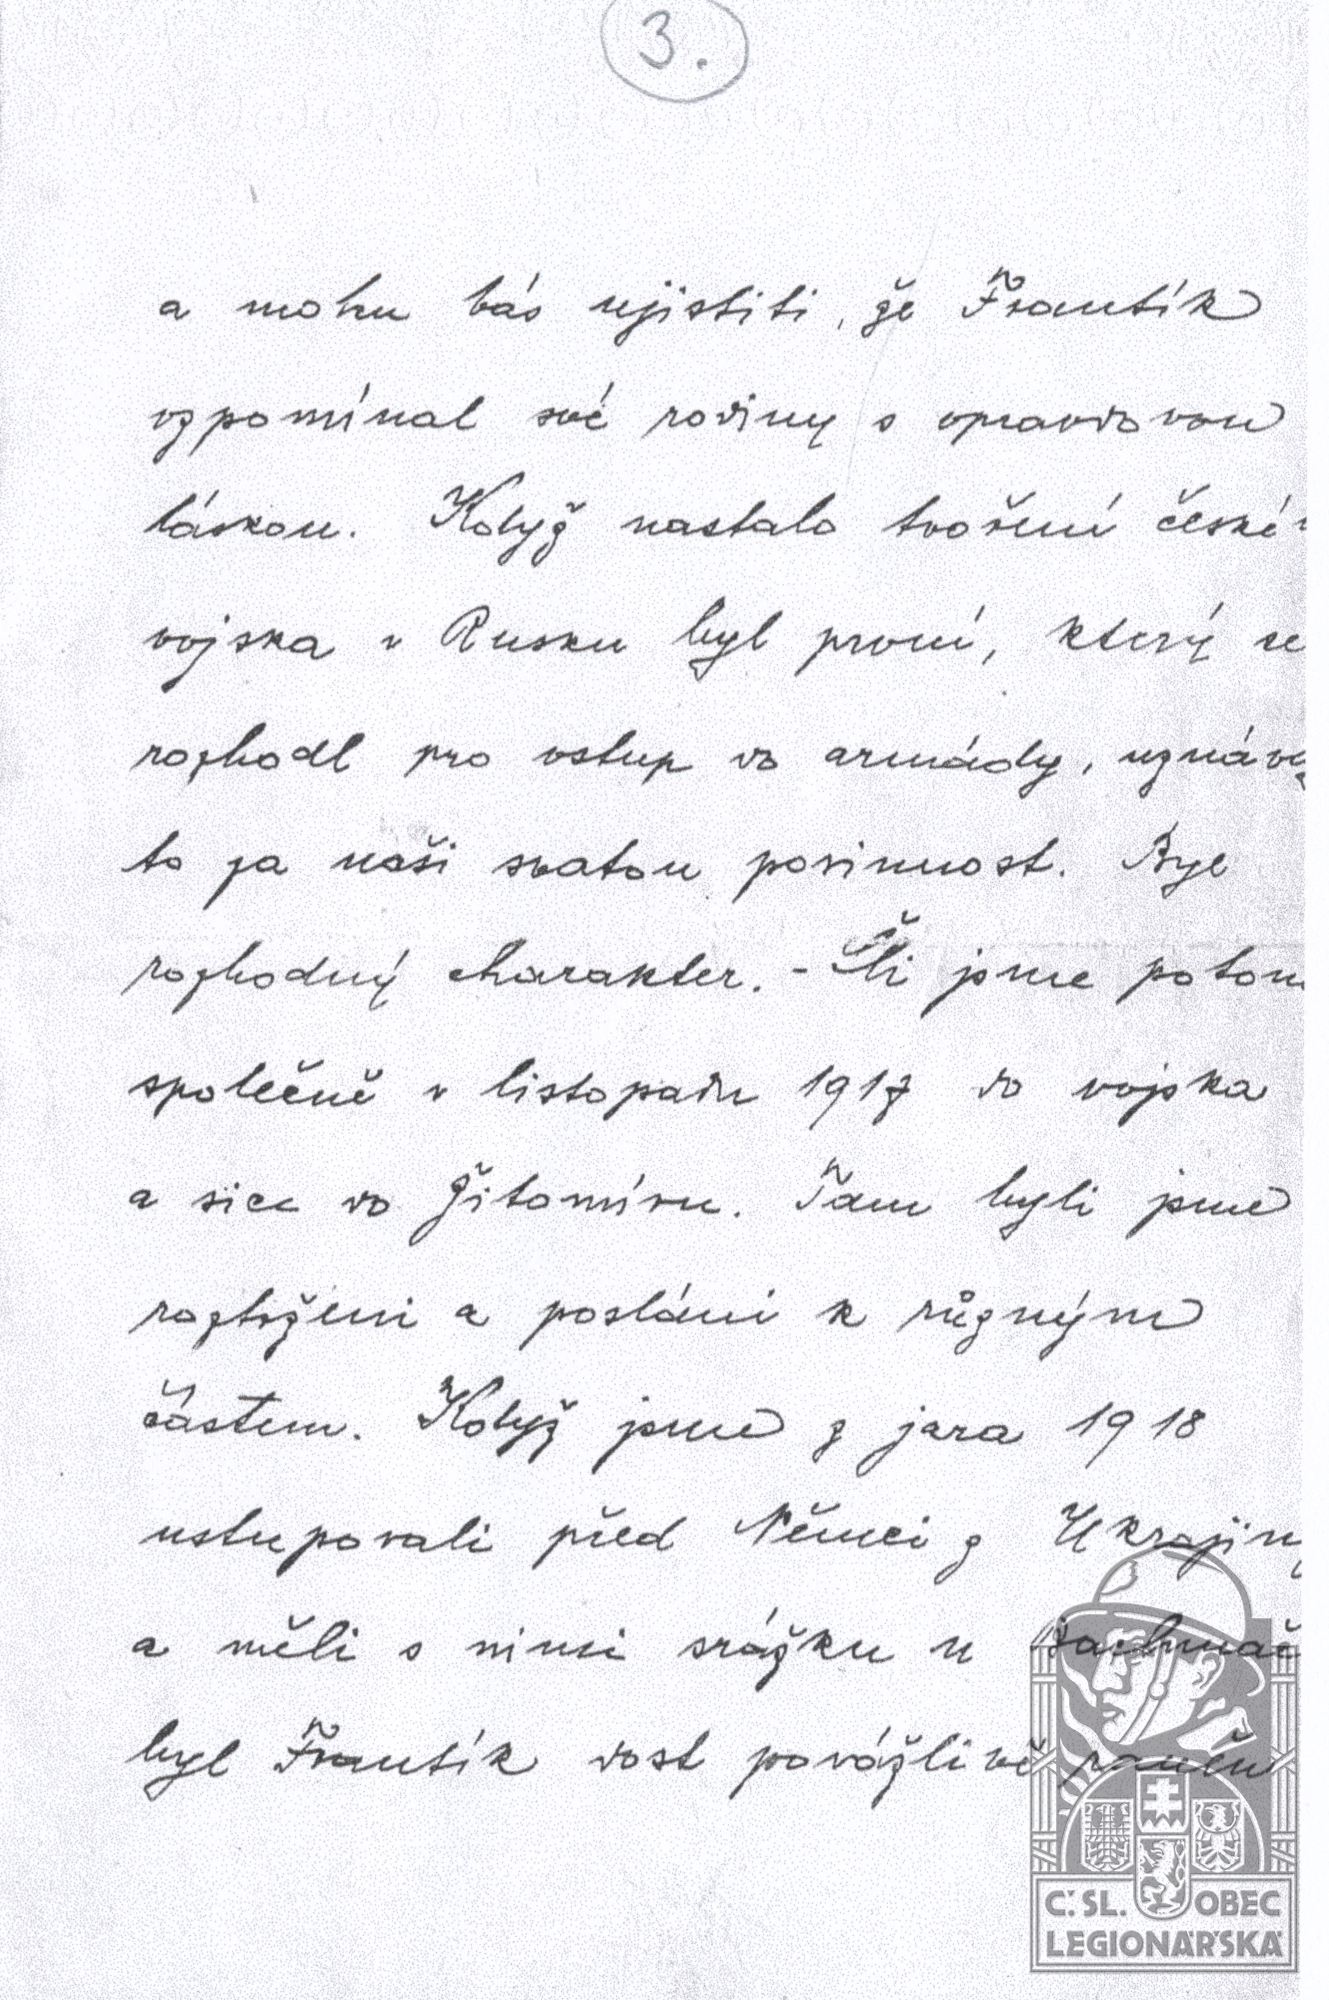 3.
a mohu Vás ujistiti, že Frantík
vzpomínal své rodiny s opravdovou
láskou. Když nastalo tvoření české
vojska v Rusku byl první, který se
rozhodl pro vstup do armády, uznáva
to za naši svatou povinnost. Byl
rozhodný charakter. - Šli jsme potom
společně v listopadu 1917 do vojska
a sice do Žitomíru. Tam byli jsme
roztrženi a posláni k různým
částem. Když jsme z jara 1918
ustupovali před Němci z Ukrajiny
a měli s nimi srážku u Bachmač
byl Frantík dost povážlivě raněn
Č. SL. OBEC
LEGIONÁŘSKÁ